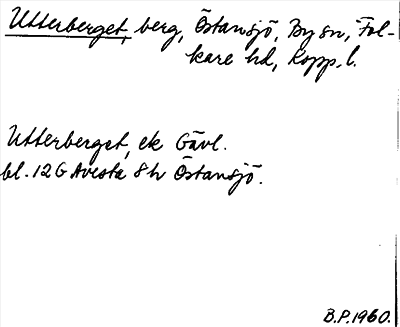 Utterberget, berg, Östansjö, By sn, Fol-
kare hd, Kopp. l.
Utterberget, ek Gävl.
bl. 12G Avesta 8h Östansjö.
B.P. 1960.